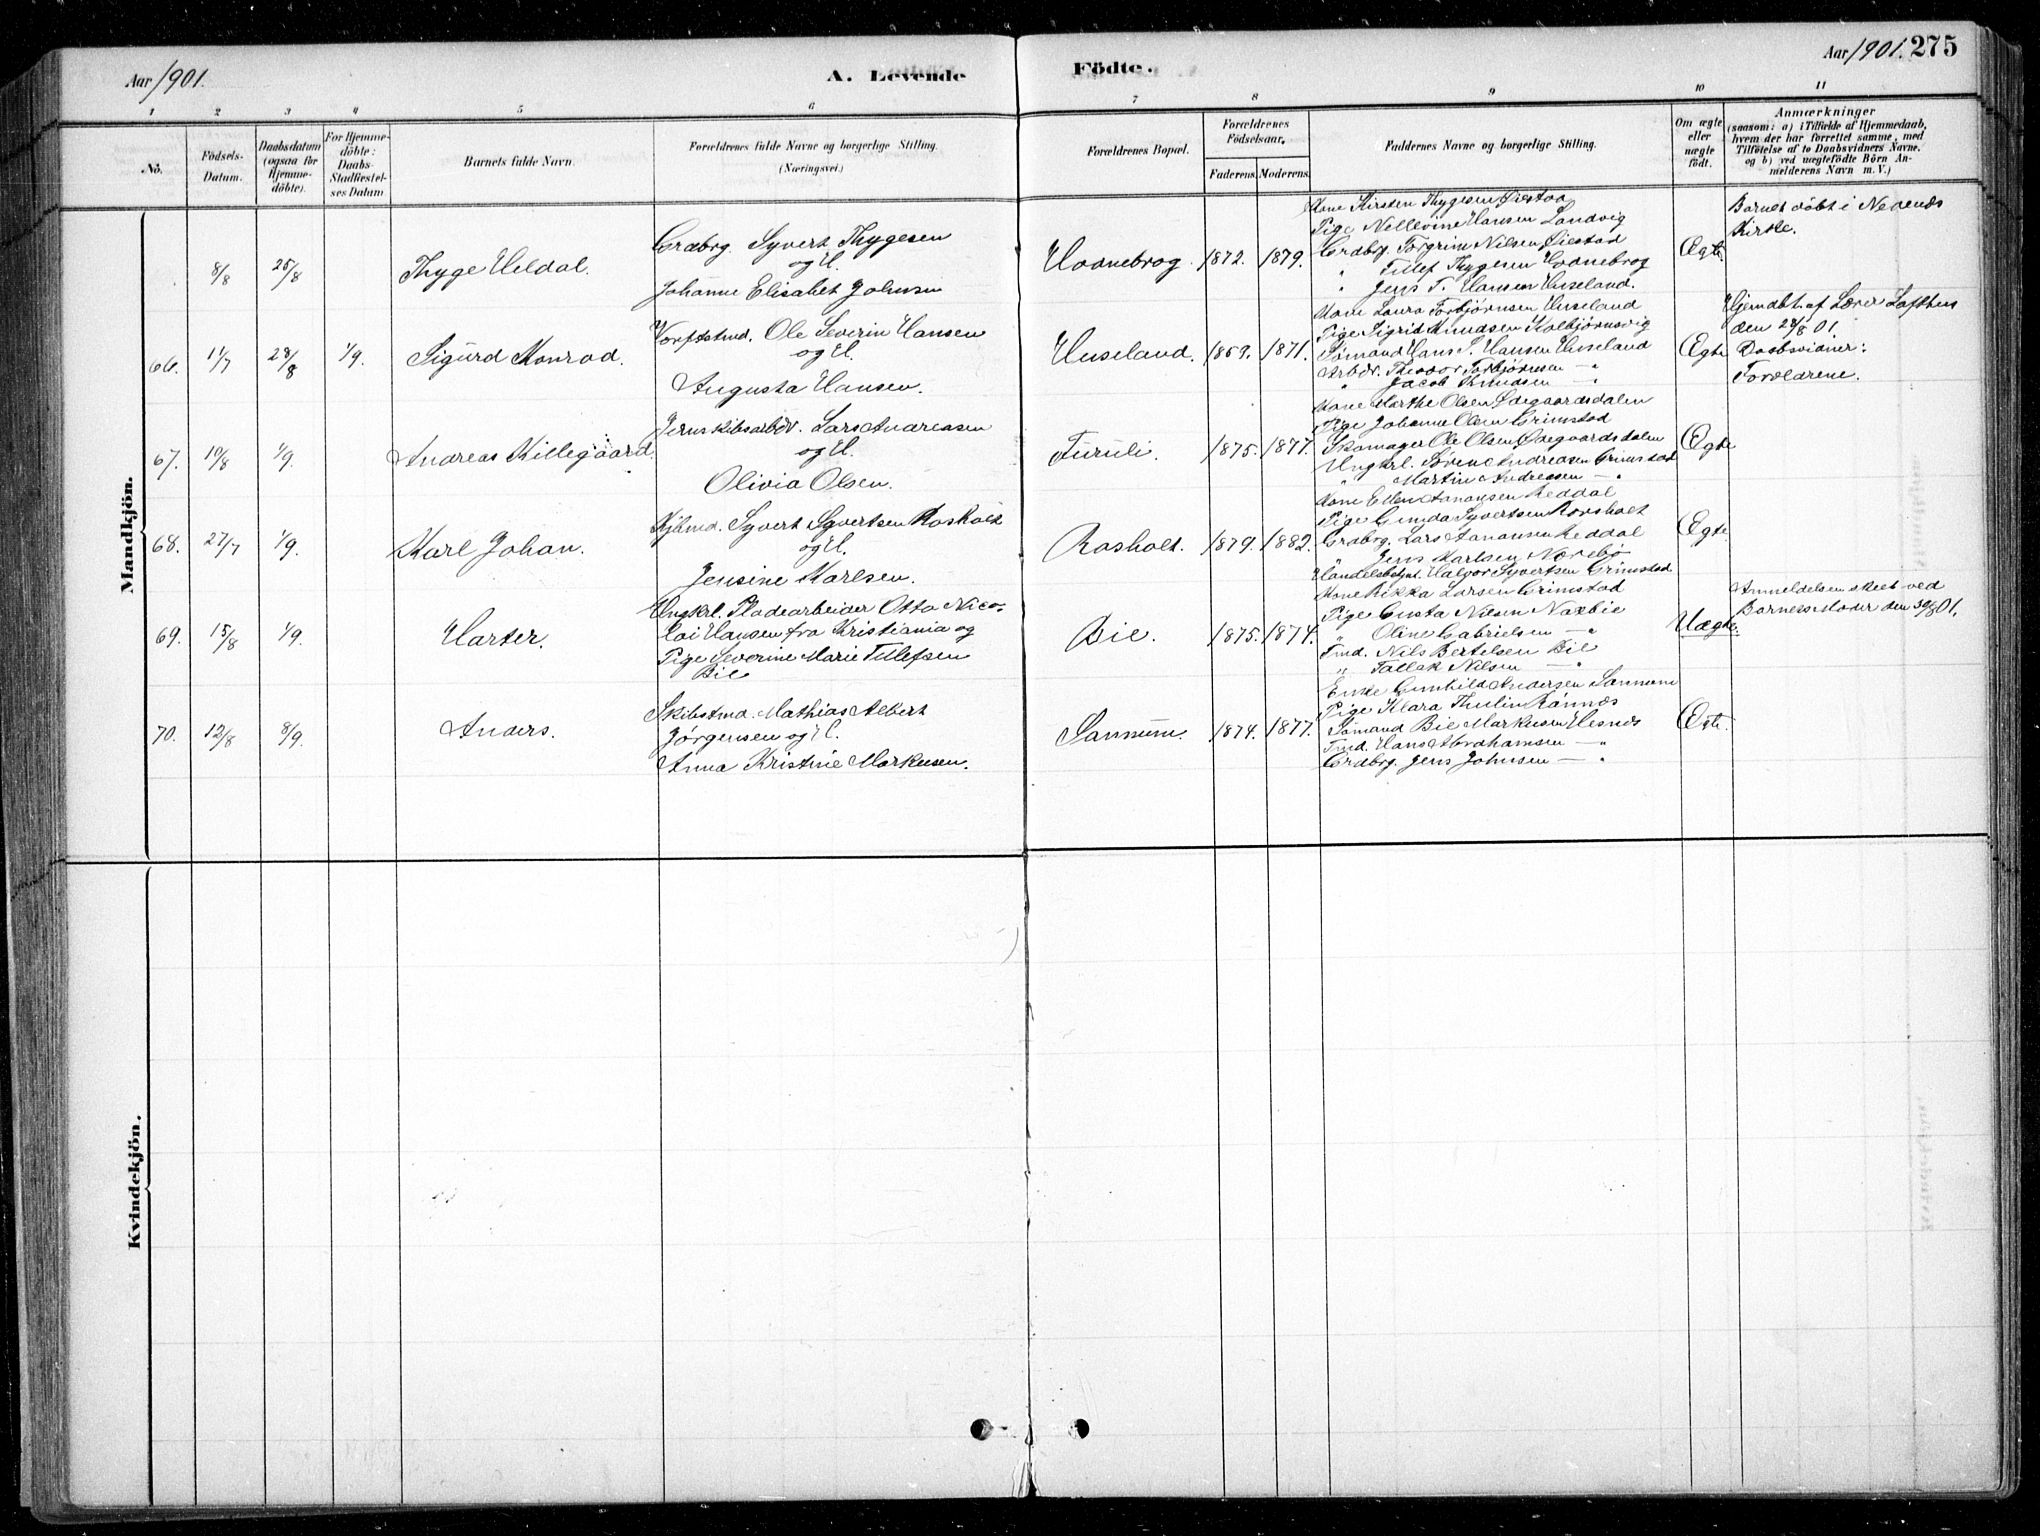 Aar 1901.
A. Levende
Födte.
Aar 1901. 275
1 2 3 4 5 6 7 8 9 10 11
No.
Födsels-
Datum.
Daabsdatum
(ogsaa for
Hjemme-
döbte).
For Hjemme-
döbte:
Daabs-
Stadfæstel-
ses Datum
Barnets fulde Navn.
Forældrenes fulde Navne og borgerlige Stilling.
(Næringsvei.)
Forældrenes Bopæl.
Forældrenes
Födselsaar.
Faderens. Moderens.
Faddernes Navne og borgerlige Stilling.
Om ægte
eller
uægte
födt.
Anmærkninger
(saasom: a) i Tilfælde af Hjemmedaab,
hvem der har forrettet samme, med
Tilföielse af to Daabsvidners Navne.
og b) ved uægtefödte Börn An-
melderens Navn m. V.)
Mandkjön.
8/8 25/8 Thyge Heldal.
Grdbrg. Syvert Thygesen
og H.
Johanne Elisabet Johnsen
Hodnebrog. 1872. 1879.
Kone Kirsten Thygesen Øiestad
Pige Nellevine Hansen Landvig
Grdbrg. Torgrim Nilsen Øiestad
" Tellef Thygesen Hodnebrog
" Jens T. Hansen Huseland.
Ægte.
Barnet døbt i Nedenes
Kirke.
66. 1/7 28/8 1/9. Sigurd Konrad.
Ole Severin Hansen
og H.
Augusta Hansen.
Huseland. 1859. 1871.
Kone Laura Torbjørnsen Huseland
Pige Sigrid Knudsen Kolbjørnsvig
Sømand Hans T. Hansen Huseland
Arbdr. Theodor Torbjørnsen — "
" Jacob Knudsen — "
Ægte
Hjemdbt. af Lærer Lofthus
den 28/8 01.
Daabsvidner:
Forældrene.
67. 10/8 1/9. Andreas Killegaard.
Jernskibsarbdr. Lars Andreasen
og H.
Olivia Olsen.
Furuli. 1875. 1877.
Kone Marthe Olsen Ødegaardsdalen
Pige Johanne Olsen Grimstad
Skomager Ole Olsen Ødegaardsdalen
Ungkrl. Søren Andreasen Grimstad
" Martin Andreasen — "
Ægte
68. 27/7 1/9. Karl Johan.
Syvert Syvertsen Rosholt
og H.
Jensine Karlsen.
Rosholt. 1879. 1882.
Kone Ellen Aanonsen Reddal
Pige Gunda Syvertsen Rosholt
Grdbrg. Lars Aanonsen Reddal
Jens Karlsen Nærebø
Handelsbetjnt. Halvor Syvertsen Grimstad
Ægte
69. 15/8 1/9. Harter.
Ungkrl. Pladearbeider Otto Nico-
lai Hansen fra Kristiania og
Pige Severine Marie Tellefsen
Bie
Bie. 1875. 1874.
Kone Rikka Larsen Grimstad
Pige Gusta Nilsen Naxbie
" Oline Gabrielsen — "
Tmd. Nils Bertelsen Bie
" Tallak Nilsen — "
Uægte.
Anmeldelsen skeet ved
Barnets Moder den 30/8 01.
70. 12/8 8/9. Anders.
Skibstmd. Mathias Albert
Jørgensen og H.
Anna Kristine Markusen.
Sannum. 1874. 1877.
Enke Gunhild Andersen Sannum
Pige Klara Thulin Rønnes
Sømand Bie Markusen Hesnes
Tmd. Hans Abrahamsen — "
Grdbrg. Jens Johnsen — "
Ægte.
Kvindekjön.